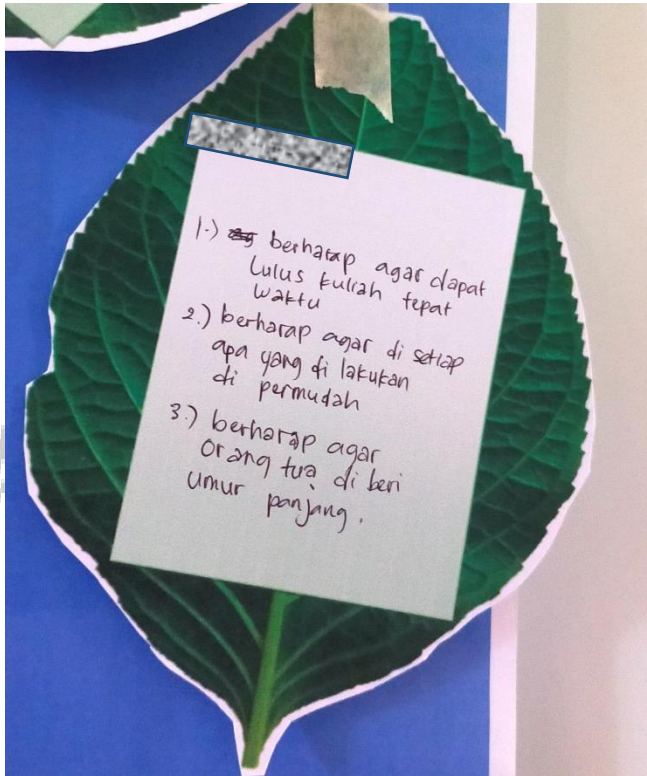 1.) berharap agar dapat
lulus kuliah tepat
waktu
2.) berharap agar di setiap
apa yang di lakukan
di permudah
3.) berharap agar
orang tua di beri
umur panjang.